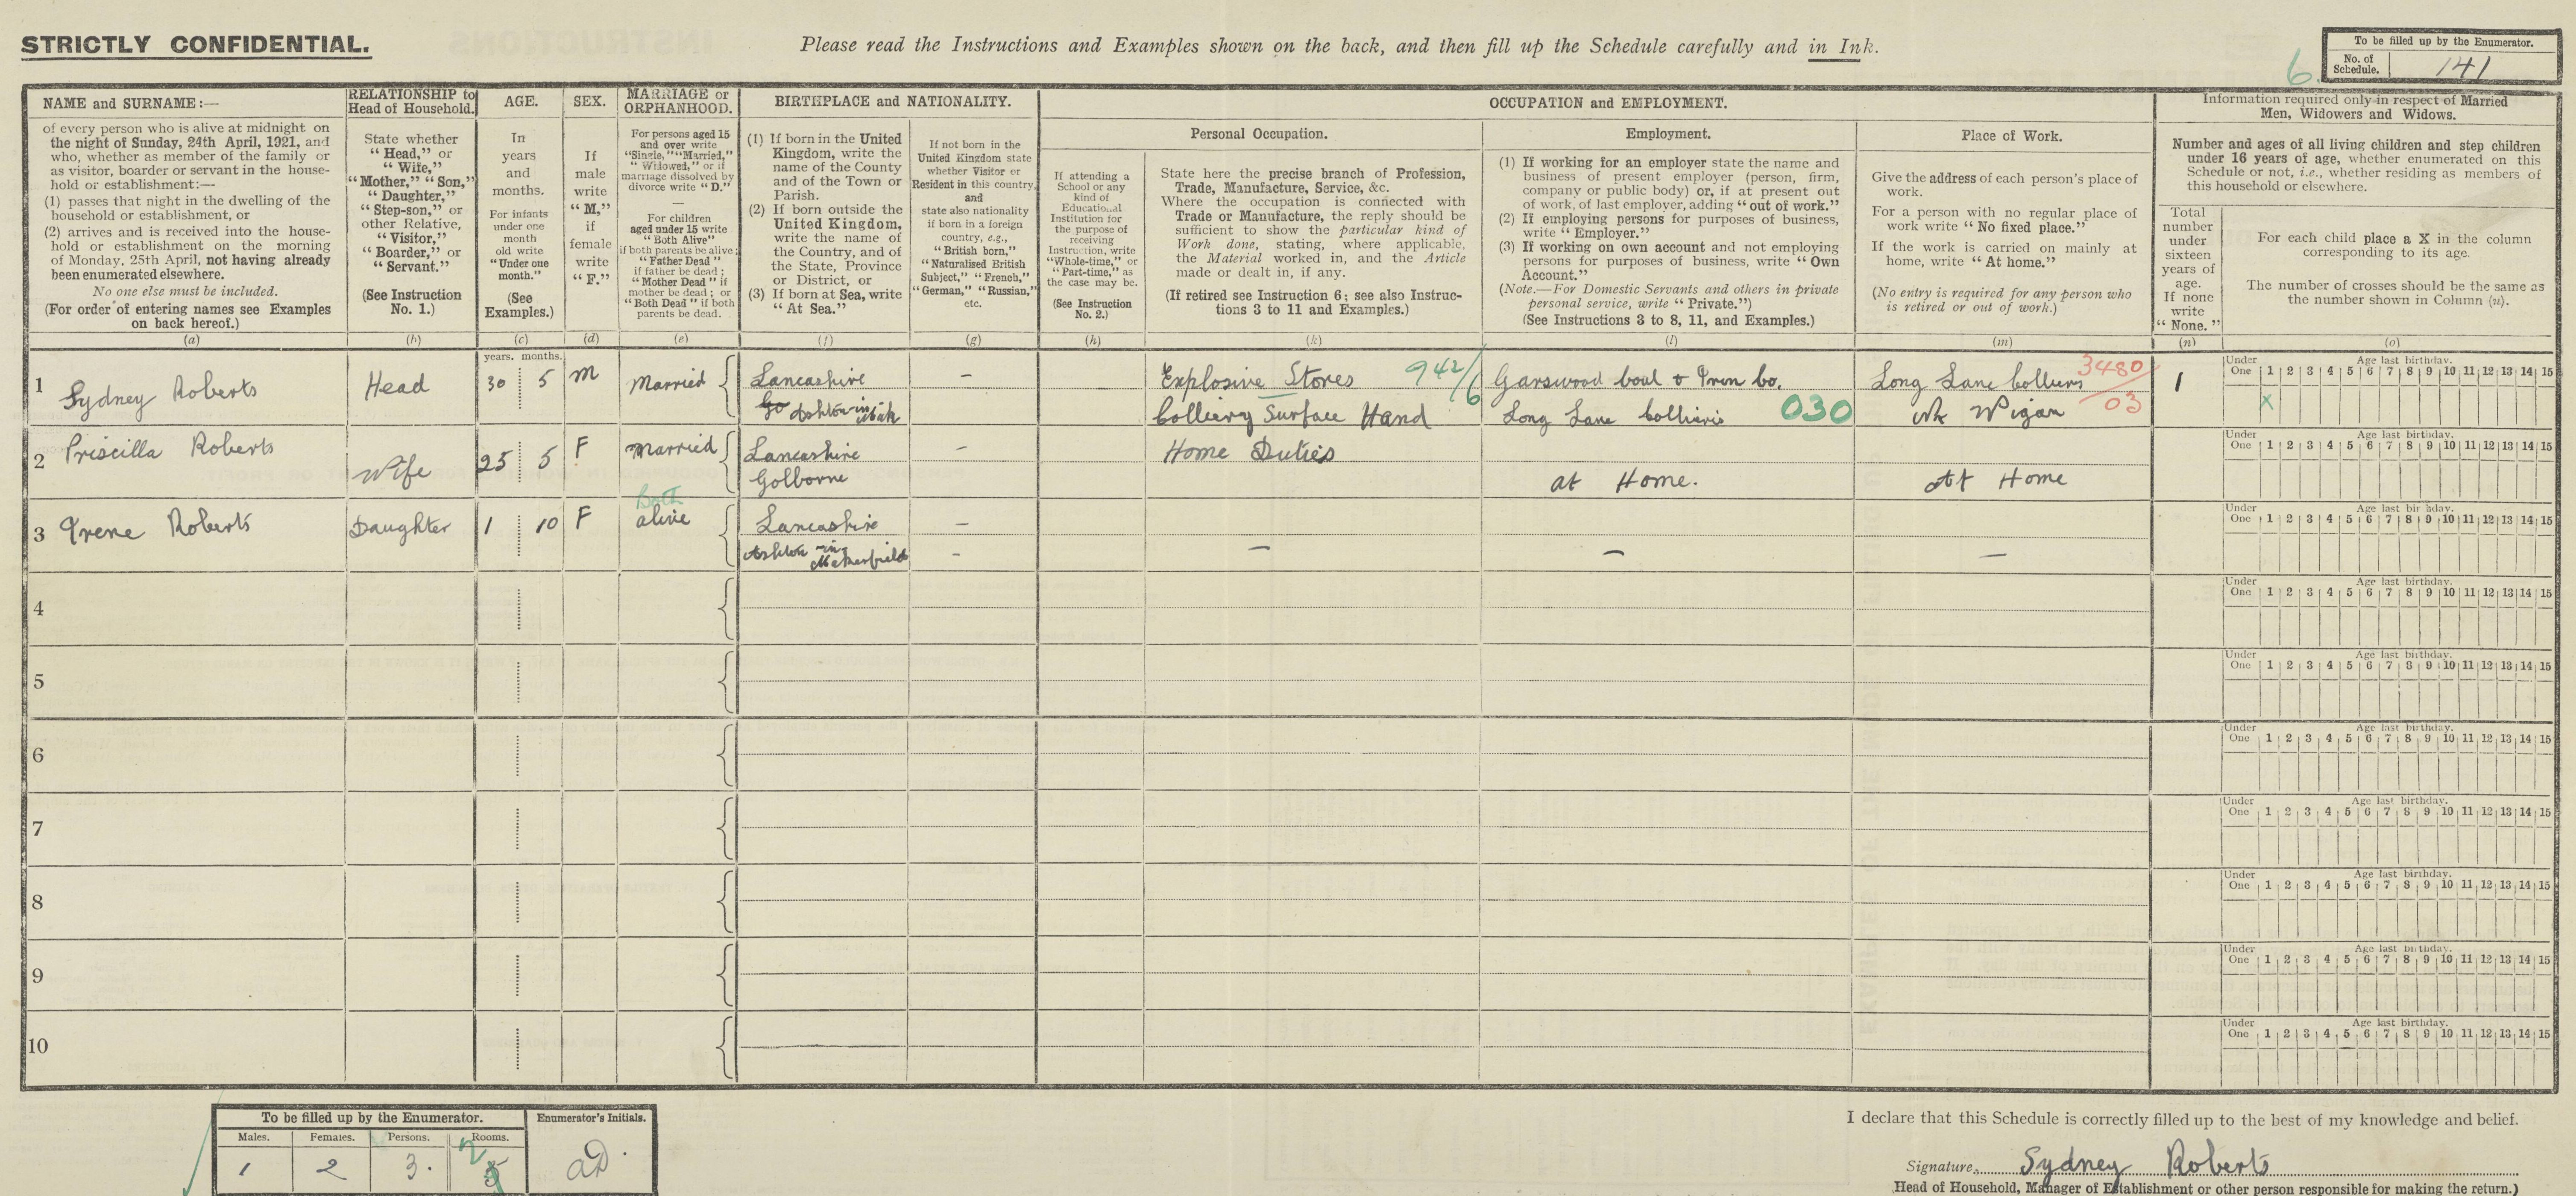 STRICTLY CONFIDENTIAL.
Please read the Instructions and Examples shown on the back, and then fill up the Schedule carefully and in Ink.
6.
To be filled up by the Enumerator.
No. of Schedule. 141
NAME and SURNAME:—
of every person who is alive at midnight on
the night of Sunday, 24th April, 1921, and
who, whether as member of the family or
as visitor, boarder or servant in the house-
hold or establishment:—
(1) passes that night in the dwelling of the
household or establishment, or
(2) arrives and is received into the house-
hold or establishment on the morning
of Monday, 25th April, not having already
been enumerated elsewhere.
No one else must be included.
(For order of entering names see Examples
on back hereof.)
(a)
RELATIONSHIP to
Head of Household.
State whether
"Head," or
"Wife,"
"Mother," "Son,"
"Daughter,"
"Step-son," or
other Relative,
"Visitor,"
"Boarder," or
"Servant."
(See Instruction
No. 1.)
(b)
AGE.
In
years
and
months.
For infants
under one
month
old write
"Under one
month."
(See
Examples.)
(c)
SEX.
If
male
write
"M,"
if
female
write
"F."
(d)
MARRIAGE or
ORPHANHOOD.
For persons aged 15
and over write
"Single," "Married,"
"Widowed," or if
marriage dissolved by
divorce write "D."
—
For children
aged under 15 write
"Both Alive"
if both parents be alive;
"Father Dead"
if father be dead;
"Mother Dead" if
mother be dead; or
"Both Dead" if both
parents be dead.
(e)
BIRTHPLACE and NATIONALITY.
(1) If born in the United
Kingdom, write the
name of the County
and of the Town or
Parish.
(2) If born outside the
United Kingdom,
write the name of
the Country, and of
the State, Province
or District, or
(3) If born at Sea, write
"At Sea."
(f)
If not born in the
United Kingdom state
whether Visitor or
Resident in this country,
and
state also nationality
if born in a foreign
country, e.g.,
"British born,"
"Naturalised British
Subject," "French,"
"German," "Russian,"
etc.
(g)
OCCUPATION and EMPLOYMENT.
If attending a
School or any
kind of
Educational
Institution for
the purpose of
receiving
Instruction, write
"Whole-time," or
"Part-time," as
the case may be.
(See Instruction
No. 2.)
(h)
Personal Occupation.
State here the precise branch of Profession,
Trade, Manufacture, Service, &c.
Where the occupation is connected with
Trade or Manufacture, the reply should be
sufficient to show the particular kind of
Work done, stating, where applicable,
the Material worked in, and the Article
made or dealt in, if any.
(If retired see Instruction 6; see also Instruc-
tions 3 to 11 and Examples.)
(k)
Employment.
(1) If working for an employer state the name and
business of present employer (person, firm,
company or public body) or, if at present out
of work, of last employer, adding "out of work."
(2) If employing persons for purposes of business,
write "Employer."
(3) If working on own account and not employing
persons for purposes of business, write "Own
Account."
(Note.—For Domestic Servants and others in private
personal service, write "Private.")
(See Instructions 3 to 8, 11, and Examples.)
(l)
Place of Work.
Give the address of each person's place of
work.
For a person with no regular place of
work write "No fixed place."
If the work is carried on mainly at
home, write "At home."
(No entry is required for any person who
is retired or out of work.)
(m)
Information required only in respect of Married
Men, Widowers and Widows.
Number and ages of all living children and step children
under 16 years of age, whether enumerated on this
Schedule or not, i.e., whether residing as members of
this household or elsewhere.
Total
number
under
sixteen
years of
age.
If none
write
"None."
(n)
For each child place a X in the column
corresponding to its age.
The number of crosses should be the same as
the number shown in Column (n).
(o)
years. months.
1 Sydney Roberts Head 30 5 M Married Lancashire – Explosive Stores 942/6 Garswood Coal & Iron Co. Long Lane 3480/03 1
Ashton-in- Colliery Surface Hand Long Lane Collieries 030 Wigan
Under One Age last birthday. 1 2 3 4 5 6 7 8 9 10 11 12 13 14 15
X
2 Priscilla Roberts Wife 25 5 F Married Lancashire – Home Duties
Golborne at Home. At Home
Under One Age last birthday. 1 2 3 4 5 6 7 8 9 10 11 12 13 14 15
Both
3 Irene Roberts Daughter 1 10 F alive Lancashire –
Ashton-in-Makerfield – – – –
Under One Age last birthday. 1 2 3 4 5 6 7 8 9 10 11 12 13 14 15
4
Under One Age last birthday. 1 2 3 4 5 6 7 8 9 10 11 12 13 14 15
5
Under One Age last birthday. 1 2 3 4 5 6 7 8 9 10 11 12 13 14 15
6
Under One Age last birthday. 1 2 3 4 5 6 7 8 9 10 11 12 13 14 15
7
Under One Age last birthday. 1 2 3 4 5 6 7 8 9 10 11 12 13 14 15
8
Under One Age last birthday. 1 2 3 4 5 6 7 8 9 10 11 12 13 14 15
9
Under One Age last birthday. 1 2 3 4 5 6 7 8 9 10 11 12 13 14 15
10
Under One Age last birthday. 1 2 3 4 5 6 7 8 9 10 11 12 13 14 15
To be filled up by the Enumerator.
Males. Females. Persons. Rooms.
1 2 3. 2
Enumerator's Initials.
aD.
I declare that this Schedule is correctly filled up to the best of my knowledge and belief.
Signature, Sydney Roberts
Head of Household, Manager of Establishment or other person responsible for making the return.)